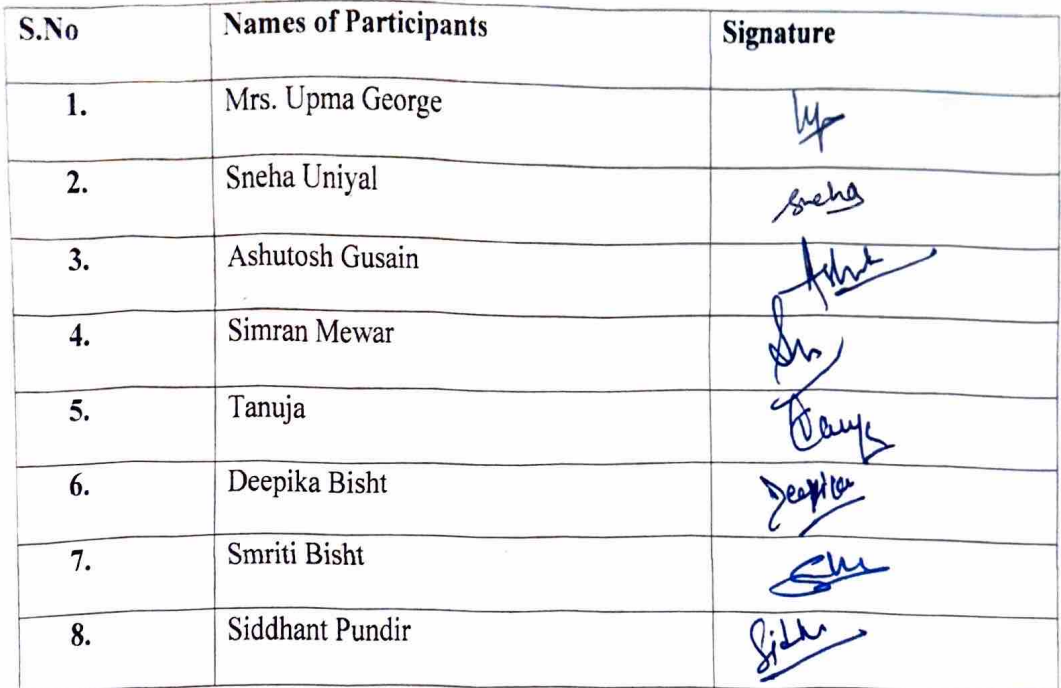 S.No Names of Participants Signature
1. Mrs. Upma George
2. Sneha Uniyal Sneha
3. Ashutosh Gusain
4. Simran Mewar
5. Tanuja
6. Deepika Bisht Deepika
7. Smriti Bisht
8. Siddhant Pundir